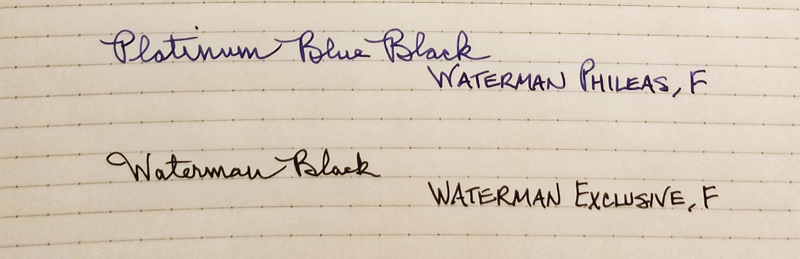 Platinum Blue Black
WATERMAN PHILEAS, F
Waterman Black
WATERMAN EXCLUSIVE, F